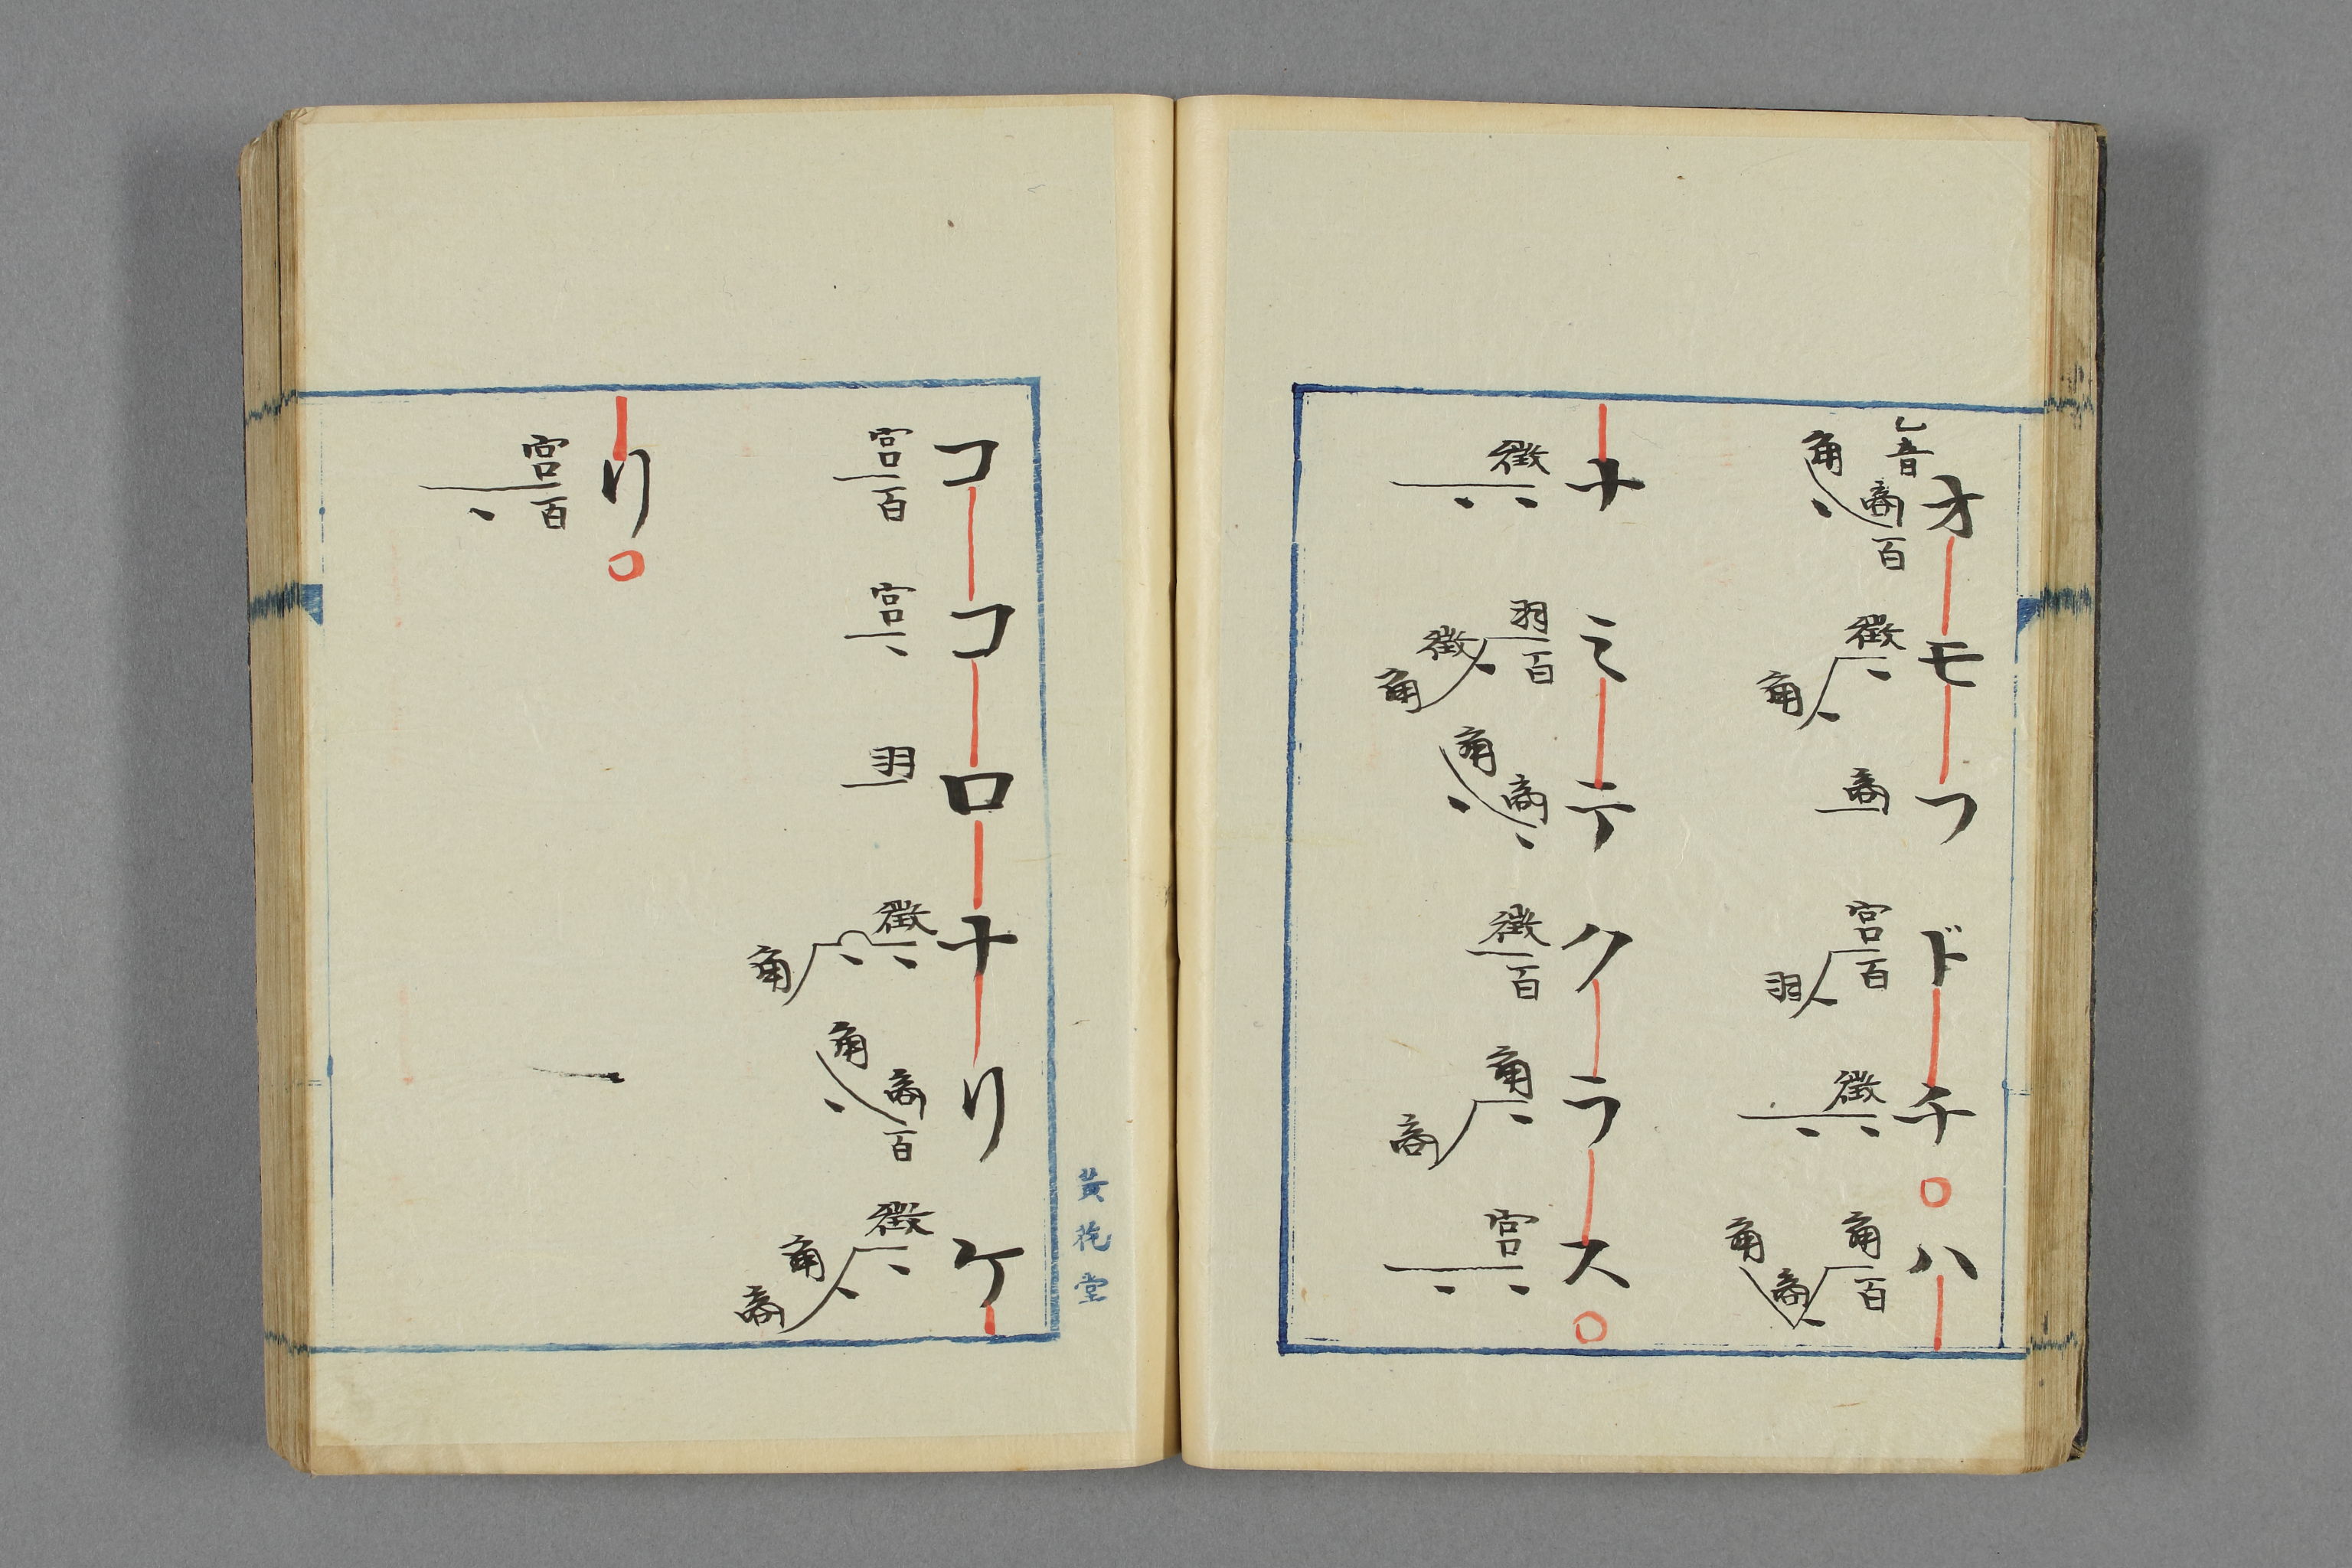 オモフドチハ
乙音
角商百
徴角
商
宮百羽
徴
角百商角
ナミテクラス
徴
羽百徴角
角商
徴百
角商
宮
黄花堂
ココロナリケ
宮百
宮
羽
徴角
角商百
徴角商
リ
宮百